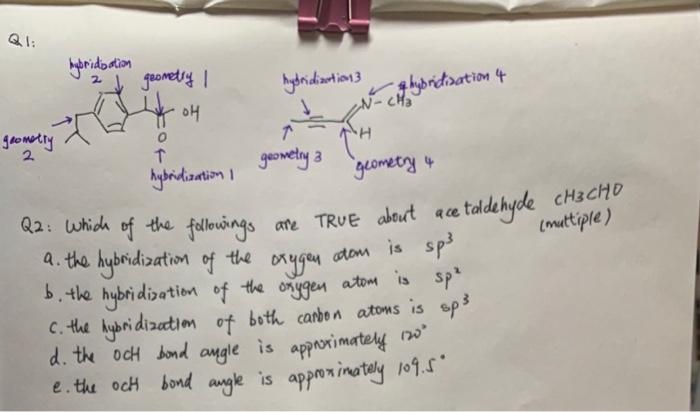 Q1:
hybridization 2
geometry 1
OH
O
geometry 2
hybridization 1
hybridization 3
hybridization 4
N-CH3
H
geometry 3
geometry 4
Q2: Which of the followings are TRUE about acetaldehyde CH3CHO
(multiple)
a. the hybridization of the oxygen atom is sp³
b. the hybridization of the oxygen atom is sp²
c. the hybridization of both carbon atoms is sp³
d. the OCH bond angle is approximately 120°
e. the OCH bond angle is approximately 109.5°